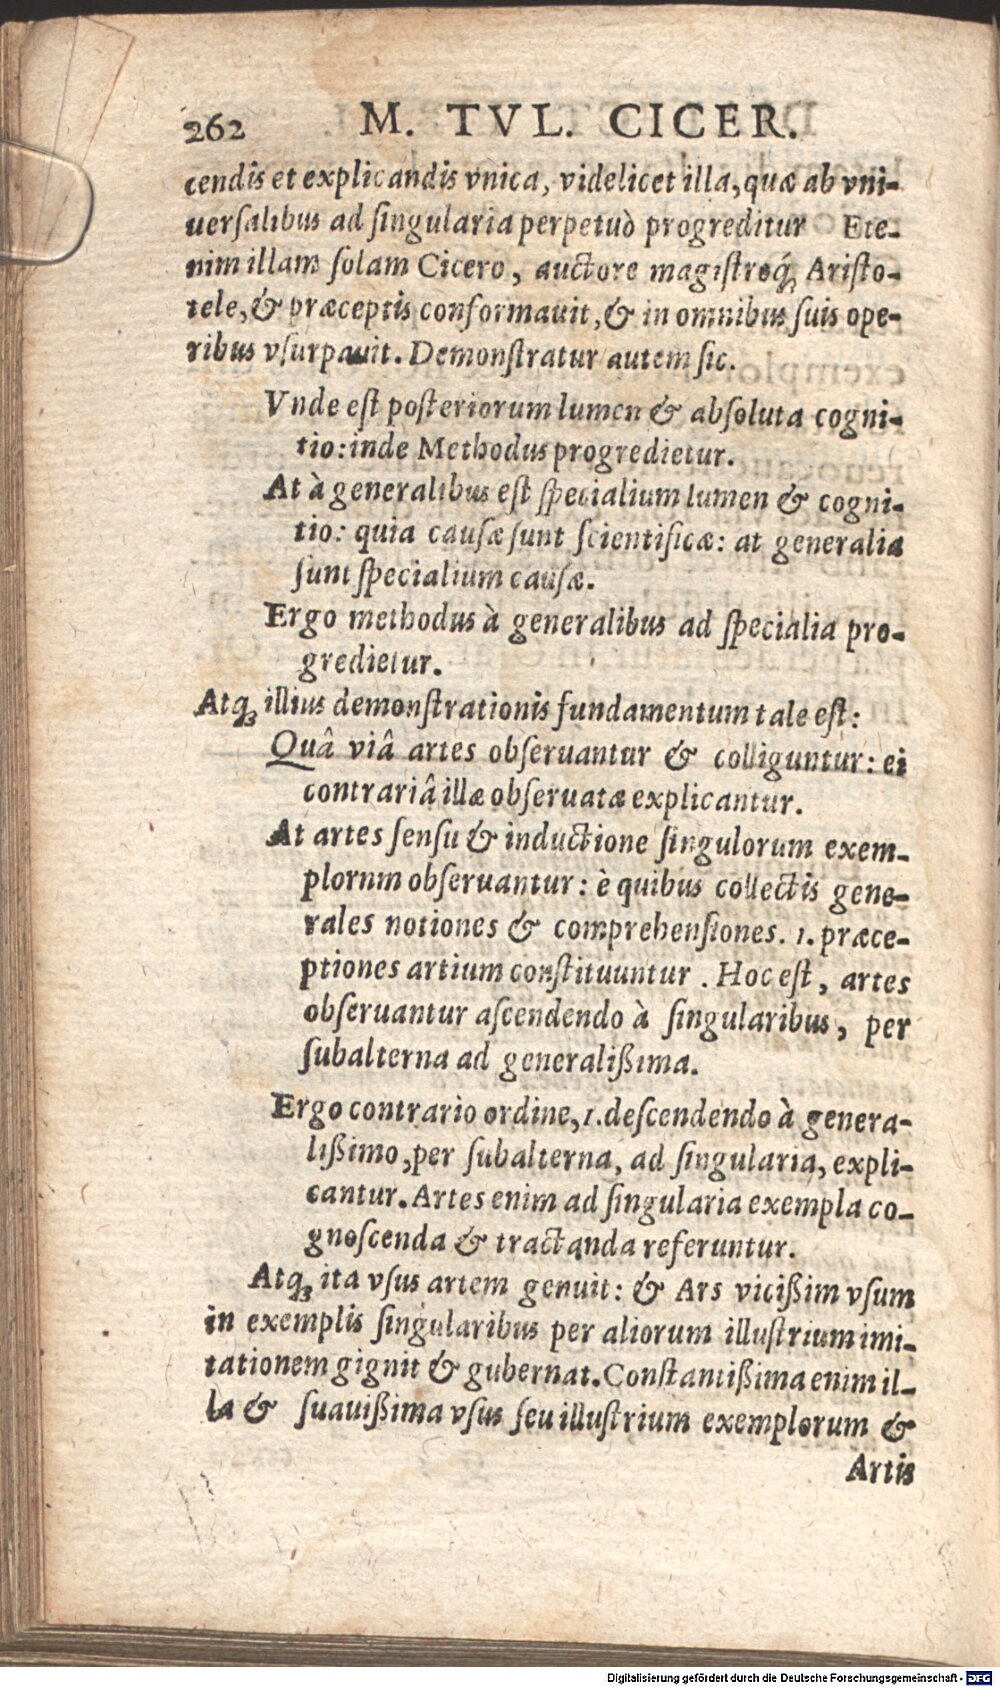 262 M. TVL. CICER.
cendis et explicandis vnica, videlicet illa, quæ ab vni-
uersalibus ad singularia perpetuò progreditur Ete-
nim illam solam Cicero, auctore magistroq́; Aristo-
tele, & præceptis conformauit, & in omnibus suis ope-
ribus vsurpauit. Demonstratur autem sic.
Vnde est posteriorum lumen & absoluta cogni-
tio: inde Methodus progredietur.
At à generalibus est specialium lumen & cogni-
tio: quia causæ sunt scientificæ: at generalia
sunt specialium causæ.
Ergo methodus à generalibus ad specialia pro-
gredietur.
Atq; illius demonstrationis fundamentum tale est:
Quâ viâ artes obseruantur & colliguntur: ei
contrariâ illæ obseruatæ explicantur.
At artes sensu & inductione singulorum exem-
plornm obseruantur: è quibus collectis gene-
rales notiones & comprehensiones. 1. præce-
ptiones artium constituuntur. Hoc est, artes
obseruantur ascendendo à singularibus, per
subalterna ad generalißima.
Ergo contrario ordine, 1. descendendo à genera-
lißimo, per subalterna, ad singularia, expli-
cantur. Artes enim ad singularia exempla co-
gnoscenda & tractanda referuntur.
Atq; ita vsus artem genuit: & Ars vicißim vsum
in exemplis singularibus per aliorum illustrium imi-
tationem gignit & gubernat. Constantißima enim il-
la & suauißima vsus seu illustrium exemplorum &
Artis
Digitalisierung gefördert durch die Deutsche Forschungsgemeinschaft - DFG